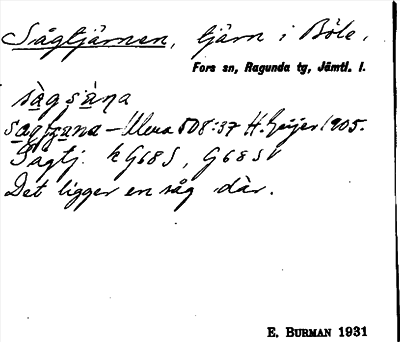 Sågtjärnen, tjärn i Böle,
Fors sn, Ragunda tg, Jämtl. l.
sàgsàna
508:37 H. Geijer 1905.
Sågtj. k G68S, G68SV
Det ligger en såg där.
E. BURMAN 1931